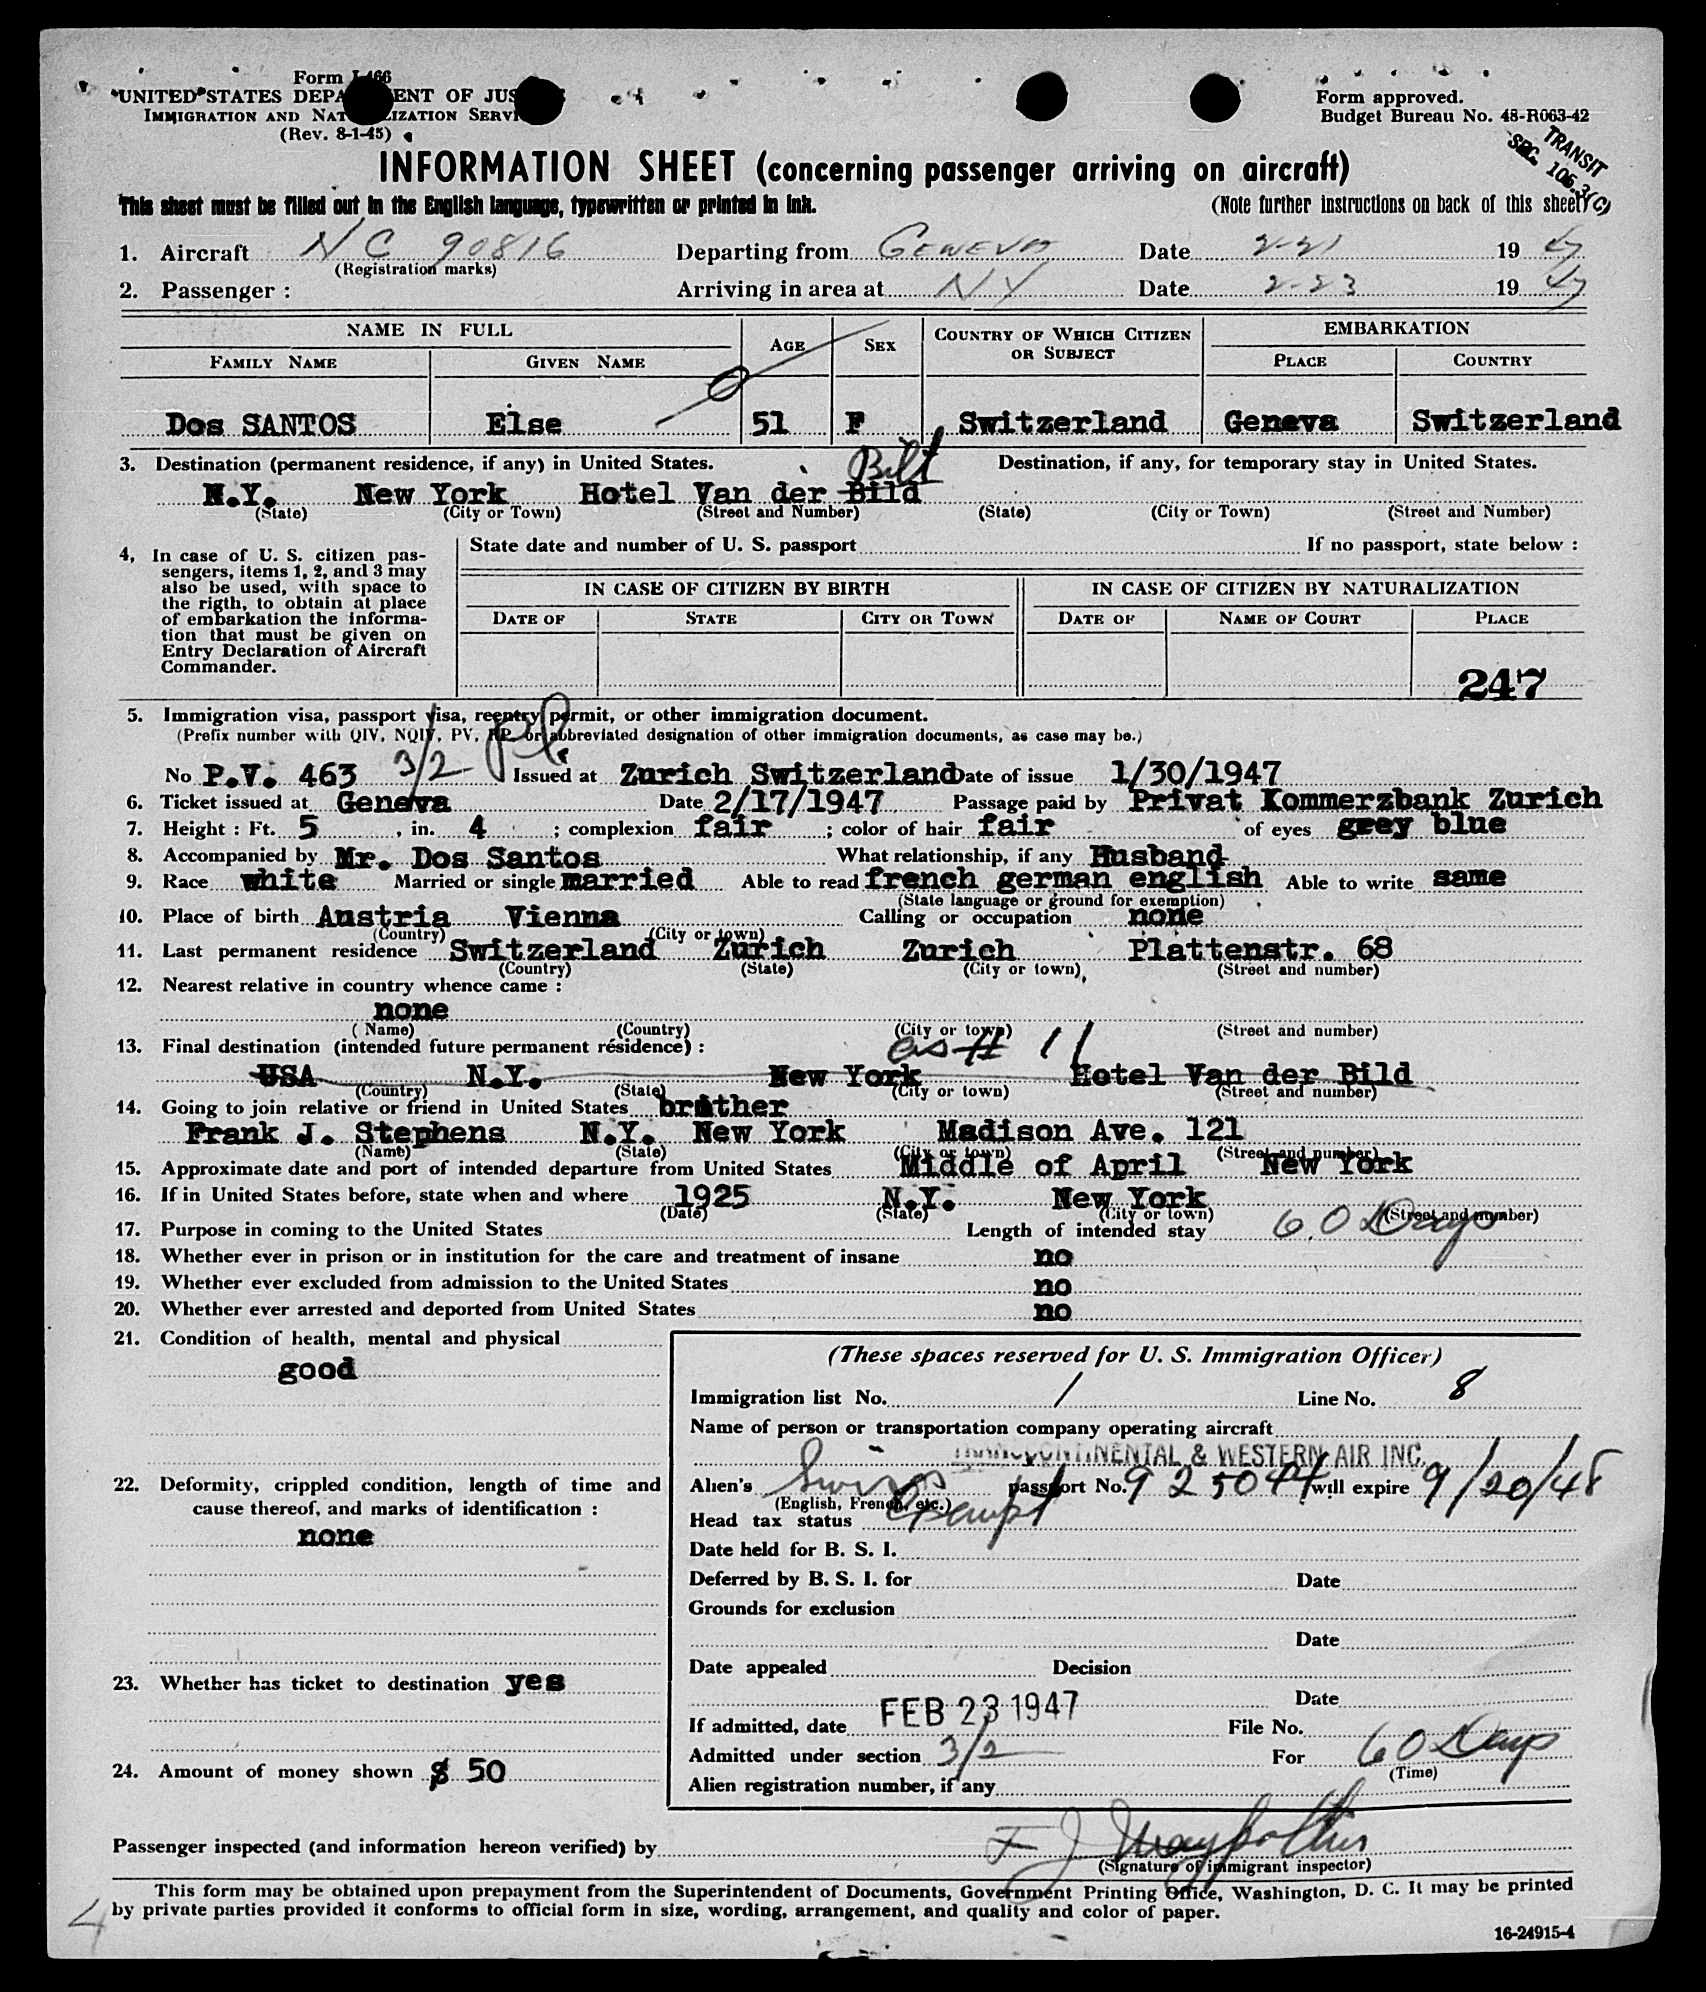 Form I-466
UNITED STATES DEPARTMENT OF JUSTICE
IMMIGRATION AND NATURALIZATION SERVICE
(Rev. 8-1-45)
Form approved.
Budget Bureau No. 48-R063-42
TRANSIT
SEC. 106.3(C)
INFORMATION SHEET (concerning passenger arriving on aircraft)
This sheet must be filled out in the English language, typewritten or printed in ink.
(Note further instructions on back of this sheet)
1. Aircraft NC 90816 Departing from GENEVA Date 2-21 1947
(Registration marks)
2. Passenger : Arriving in area at NY Date 2-23 1947
NAME IN FULL AGE SEX COUNTRY OF WHICH CITIZEN OR SUBJECT EMBARKATION
FAMILY NAME GIVEN NAME PLACE COUNTRY
Dos SANTOS Else 51 F Switzerland Geneva Switzerland
3. Destination (permanent residence, if any) in United States. Destination, if any, for temporary stay in United States.
Bilt
N.Y. New York Hotel Van der Bild
(State) (City or Town) (Street and Number) (State) (City or Town) (Street and Number)
4, In case of U. S. citizen pas-
sengers, items 1, 2, and 3 may
also be used, with space to
the rigth, to obtain at place
of embarkation the informa-
tion that must be given on
Entry Declaration of Aircraft
Commander.
State date and number of U. S. passport If no passport, state below :
IN CASE OF CITIZEN BY BIRTH IN CASE OF CITIZEN BY NATURALIZATION
DATE OF STATE CITY OR TOWN DATE OF NAME OF COURT PLACE
247
5. Immigration visa, passport visa, reentry permit, or other immigration document.
(Prefix number with QIV, NQIV, PV, RP or abbreviated designation of other immigration documents, as case may be.)
No P.V. 463 3/2 Issued at Zurich Switzerland Date of issue 1/30/1947
6. Ticket issued at Geneva Date 2/17/1947 Passage paid by Privat Kommerzbank Zurich
7. Height : Ft. 5, in. 4 ; complexion fair ; color of hair fair of eyes grey blue
8. Accompanied by Mr. Dos Santos What relationship, if any Husband
9. Race white Married or single married Able to read french german english Able to write same
(State language or ground for exemption)
10. Place of birth Austria Vienna Calling or occupation none
(Country) (City or town)
11. Last permanent residence Switzerland Zurich Zurich Plattenstr. 68
(Country) (State) (City or town) (Street and number)
12. Nearest relative in country whence came :
none
( Name) (Country) (City or town) (Street and number)
13. Final destination (intended future permanent résidence) : as # 11
USA N.Y. New York Hotel Van der Bild
(Country) (State) (City or town) (Street and number)
14. Going to join relative or friend in United States brother
Frank J. Stephens N.Y. New York Madison Ave. 121
(Name) (State) (City or town) (Street and number)
15. Approximate date and port of intended departure from United States Middle of April New York
16. If in United States before, state when and where 1925 N.Y. New York
(Date) (State) (City or town) (Street and number)
17. Purpose in coming to the United States Length of intended stay 60 Days
18. Whether ever in prison or in institution for the care and treatment of insane no
19. Whether ever excluded from admission to the United States no
20. Whether ever arrested and deported from United States no
21. Condition of health, mental and physical
good
22. Deformity, crippled condition, length of time and
cause thereof, and marks of identification :
none
23. Whether has ticket to destination yes
24. Amount of money shown $ 50
(These spaces reserved for U. S. Immigration Officer)
Immigration list No. 1 Line No. 8
Name of person or transportation company operating aircraft
TRANSCONTINENTAL & WESTERN AIR INC.
Alien's Swiss passport No. 925044 will expire 9/20/48
(English, French, etc.)
Head tax status Exempt
Date held for B. S. I.
Deferred by B. S. I. for Date
Grounds for exclusion
Date
Date appealed Decision
Date
If admitted, date FEB 23 1947 File No.
Admitted under section 3/2 For 60 Days
(Time)
Alien registration number, if any
Passenger inspected (and information hereon verified) by F J
(Signature of immigrant inspector)
This form may be obtained upon prepayment from the Superintendent of Documents, Government Printing Office, Washington, D. C. It may be printed
by private parties provided it conforms to official form in size, wording, arrangement, and quality and color of paper.
4
16-24915-4